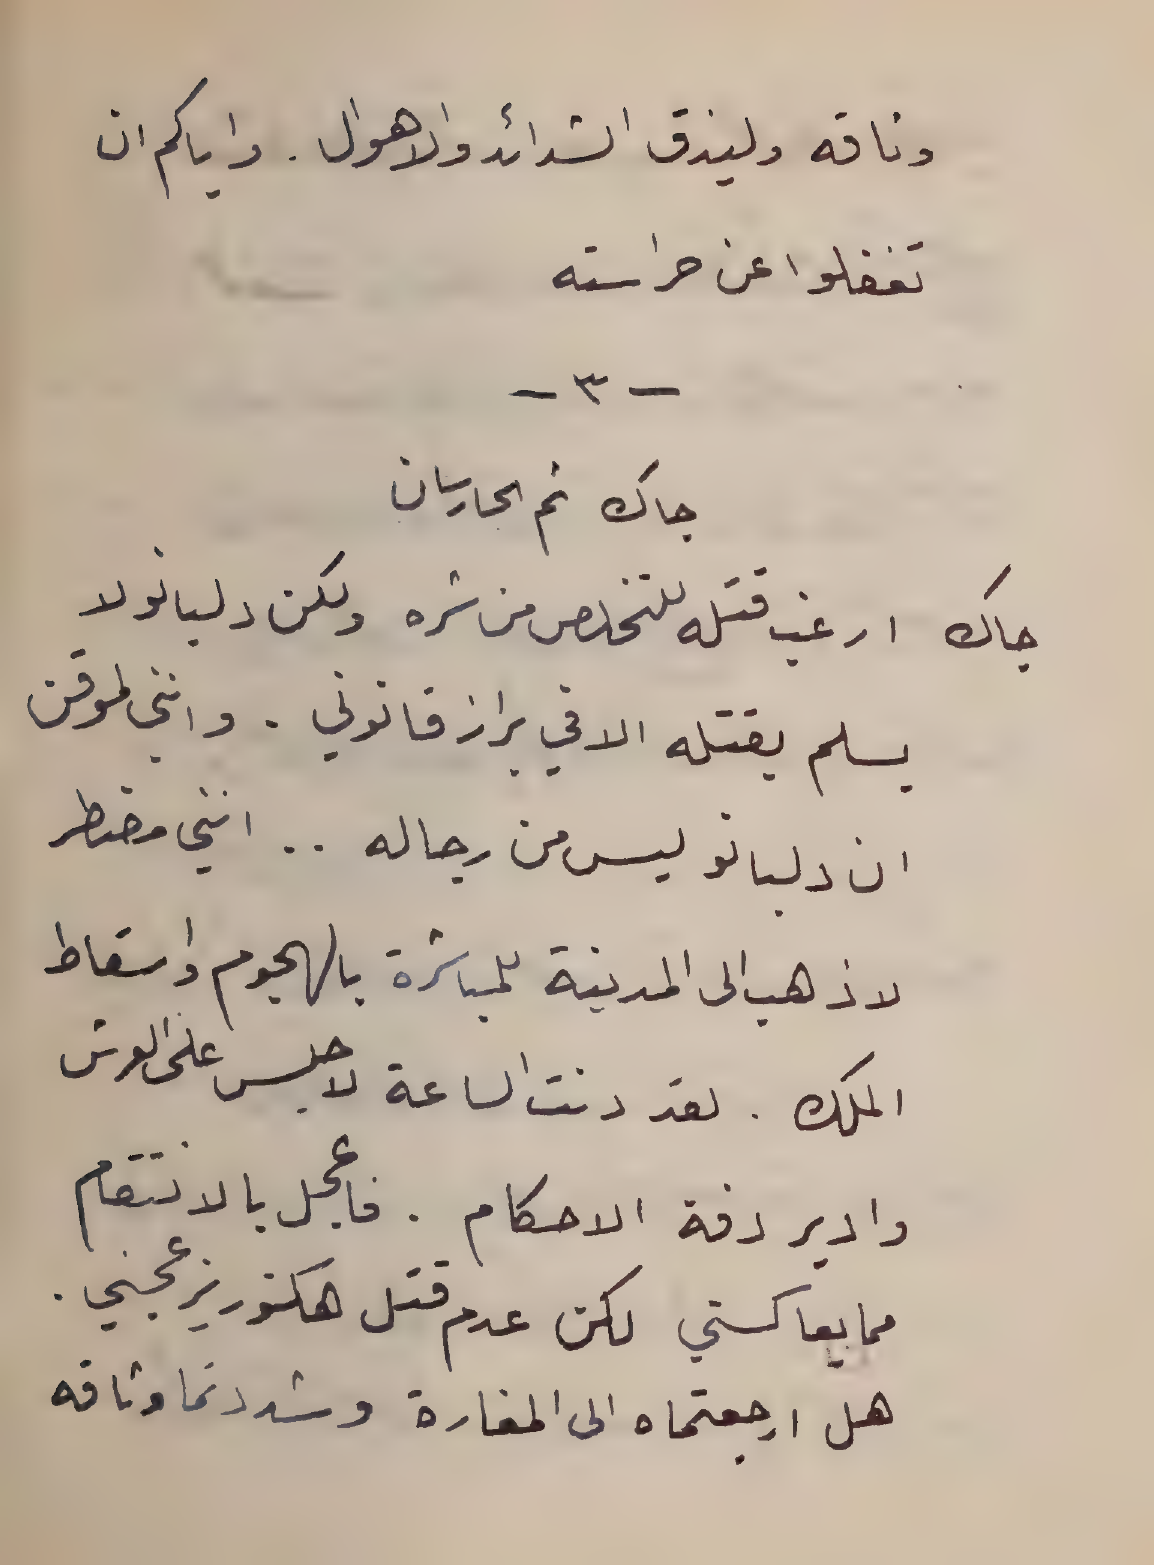 وثاقه وليذق الشدائد والاهوال . واياكم ان
تغفلوا عن حراسته
— ٣ —
جاك ثم الحارسان
جاك ارغب قتله للتخلص من شره ولكن دلبانو لا
يسلم بقتله الا في براز قانوني . وانني لموقن
ان دلبانو ليس من رجاله .. انني مضطر
لاذهب الى المدينة للمباشرة بالهجوم واسقاط
الملك . لقد دنت الساعة لاجلس على العرش
وادير دفة الاحكام . فاعجل بالانتقام
مما يعاكسني لكن عدم قتل هكتور يزعجني .
هل ارجعتماه الى المغارة وشددتما وثاقه